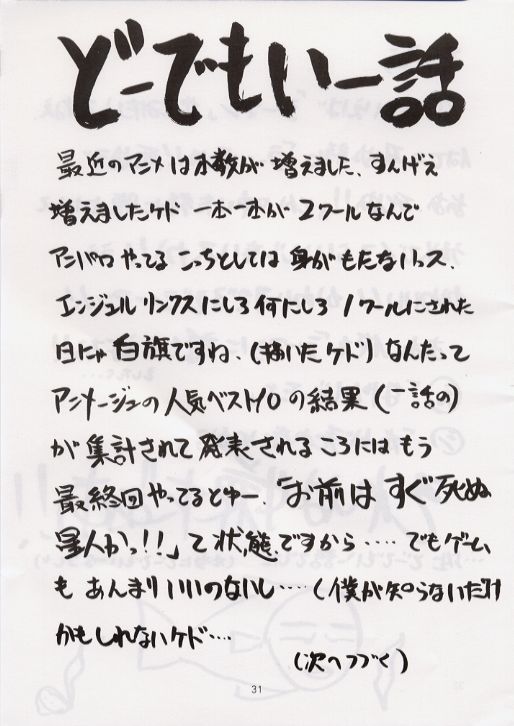 どーでもいー話
最近のアニメは本数が増えました、すんげえ
増えましたケド 一本一本が2クールなんで
アンパロやってるこっちとしては身がもたないっス、
エンジェルリンクスにしろ何にしろ1クールにされた
日にゃ白旗ですね、(描いたケド)なんたって
アニメージュの人気ベスト10の結果(一話の)
が集計されて発表されるころにはもう
最終回やってるとゆー、「お前はすぐ死ぬ
星人かっ!!」て状態ですから‥‥でもゲーム
もあんまりいいのないし‥‥(僕が知らないだけ
かもしれないケド‥‥
(次へつづく)
31